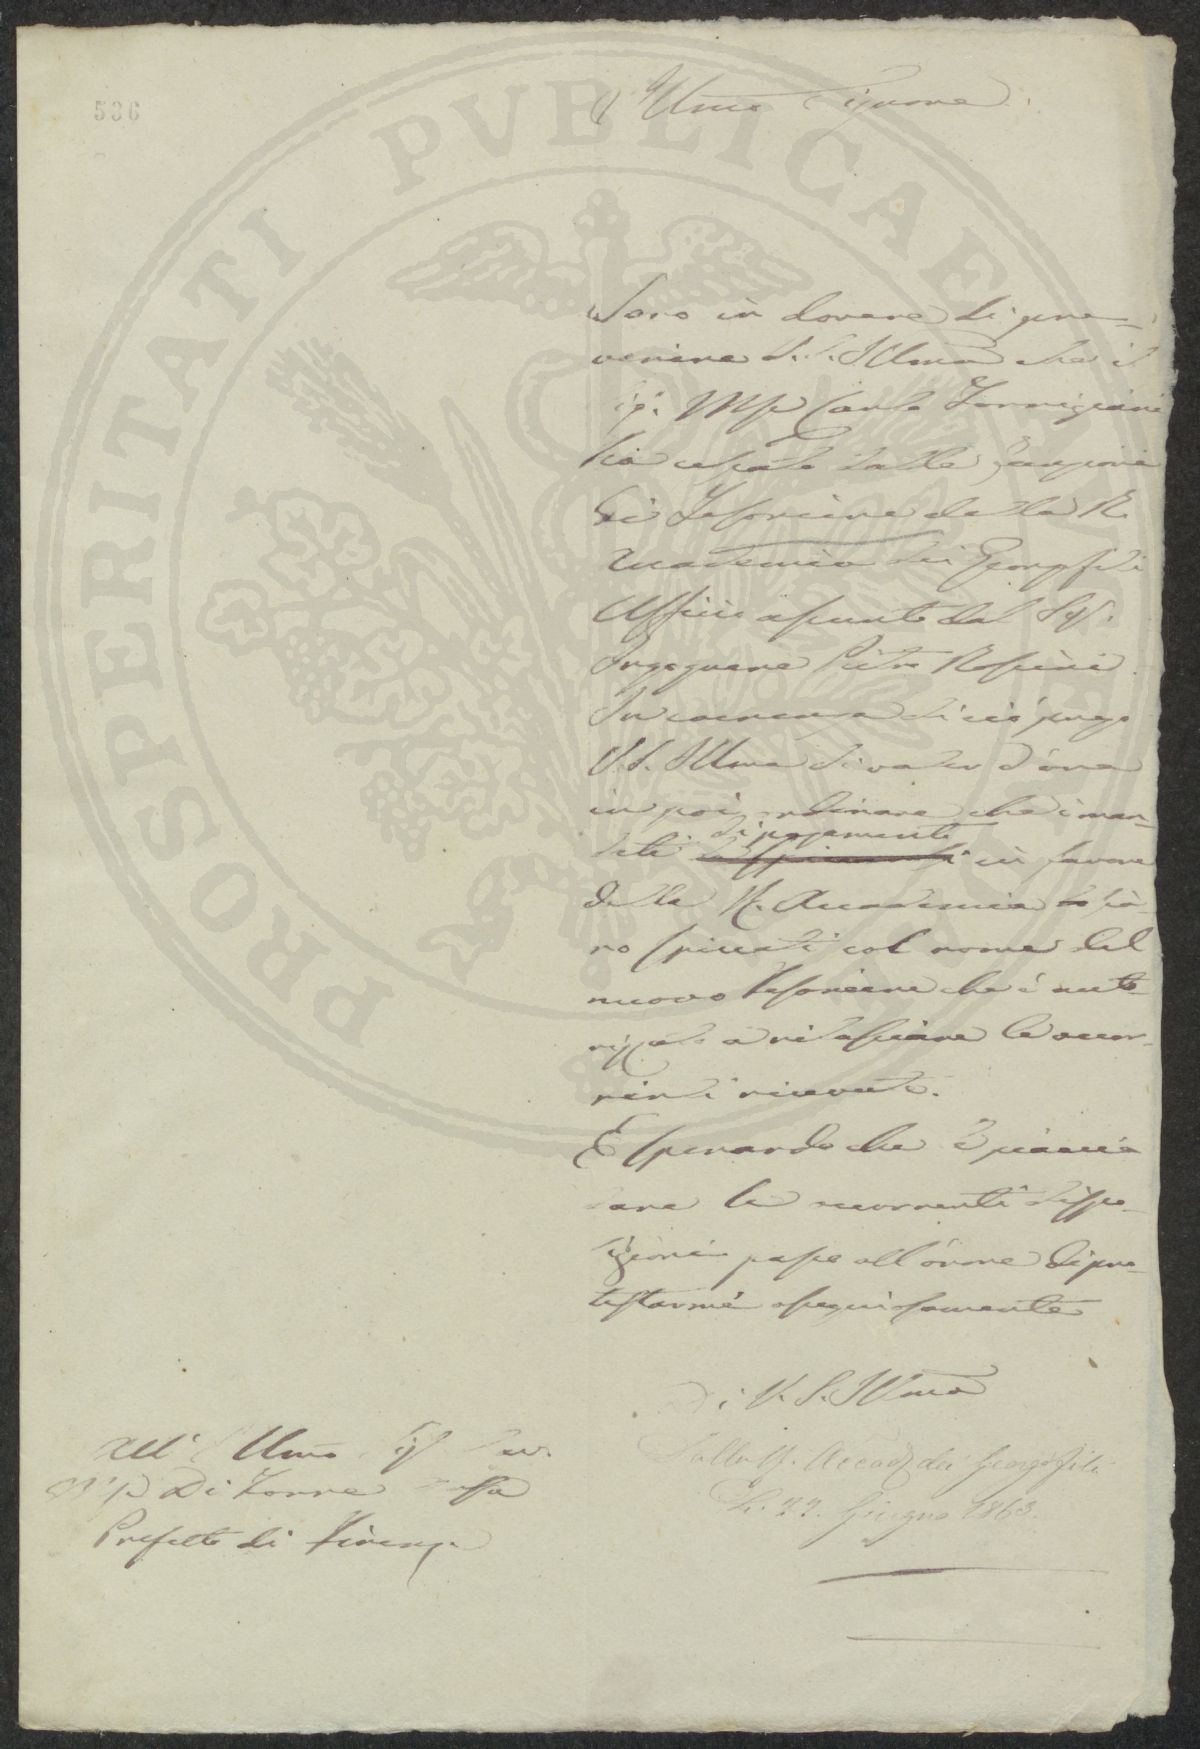 536
Illmo Signore
Sono in dovere di pre-
venire V. S. Illma che il
Sig. Mse Carlo Torrigiani
ha cessato dalle funzioni
di Tesoriere della R.
Accademia dei Georgofili
Ufficio assunto dal Sig.
Ingegnere Pietro Rossini.
In coerenza di ciò prego
V. S. Illma di voler d'ora
in poi ordinare che i man-
dati di pagamento in favore
della R. Accademia sia-
no spiccati col nome del
nuovo Tesoriere che è auto-
rizzato a rilasciare le occor-
renti ricevute.
E sperando che Le piaccia
dare le occorrenti dispo-
sizioni passo all'onore di pro-
testarmi ossequiosamente
Di V. S. Illma
Dalla R. Accad. dei Georgofili
Li. 22. Giugno 1863.
All' Illmo Sig.
Di Torre Arsa
Prefetto di Firenze
PROSPERITATI PVBLICAE